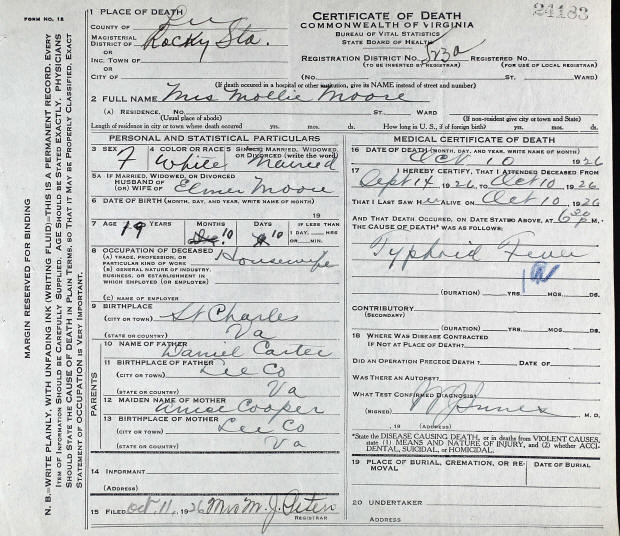 FORM NO. 12
24183
1 PLACE OF DEATH
CERTIFICATE OF DEATH
COUNTY OF Lee
COMMONWEALTH OF VIRGINIA
MAGISTERIAL DISTRICT OF Rocky Sta.
BUREAU OF VITAL STATISTICS
STATE BOARD OF HEALTH
OR
INC. TOWN OF
REGISTRATION DISTRICT NO. 523a REGISTERED NO.
(TO BE INSERTED BY REGISTRAR) (FOR USE OF LOCAL REGISTRAR)
OR
CITY OF (No. ST. WARD)
(If death occurred in a hospital or other institution, give its NAME instead of street and number)
2 FULL NAME Mrs Mollie Moore
(A) RESIDENCE. No. ST. WARD
(If non-resident give city or town and State)
Length of residence in city or town where death occurred yrs. mos. ds. How long in U. S., if of foreign birth? yrs. mos. ds.
PERSONAL AND STATISTICAL PARTICULARS
3 SEX F
4 COLOR OR RACE White
5 SINGLE, MARRIED, WIDOWED, OR DIVORCED (write the word) Married
5A IF MARRIED, WIDOWED, OR DIVORCED
HUSBAND OF
(OR) WIFE OF Elmer Moore
6 DATE OF BIRTH (MONTH, DAY, AND YEAR, WRITE NAME OF MONTH)
19
7 AGE 19 MONTHS 10 DAYS 10
IF LESS THAN
1 DAY, HRS
OR MIN.
8 OCCUPATION OF DECEASED Housewife
(A) TRADE, PROFESSION, OR
PARTICULAR KIND OF WORK
(B) GENERAL NATURE OF INDUSTRY,
BUSINESS, OR ESTABLISHMENT IN
WHICH EMPLOYED (OR EMPLOYER)
(C) NAME OF EMPLOYER
9 BIRTHPLACE
(CITY OR TOWN) St Charles
(STATE OR COUNTRY) Va
PARENTS
10 NAME OF FATHER
Daniel Carter
11 BIRTHPLACE OF FATHER
(CITY OR TOWN) Lee Co
(STATE OR COUNTRY) Va
12 MAIDEN NAME OF MOTHER
Cooper
13 BIRTHPLACE OF MOTHER
(CITY OR TOWN) Lee Co
(STATE OR COUNTRY) Va
14 INFORMANT
(ADDRESS)
15 FILED Oct. 11, 1926 Mrs M. J.
REGISTRAR
MEDICAL CERTIFICATE OF DEATH
16 DATE OF DEATH (MONTH, DAY, AND YEAR, WRITE NAME OF MONTH)
Oct 10 1926
17 I HEREBY CERTIFY, THAT I ATTENDED DECEASED FROM
Sept 14, 1926, TO Oct 10, 1926
THAT I LAST SAW H ALIVE ON Oct 10, 1926
AND THAT DEATH OCCURED, ON DATE STATED ABOVE, AT 6 30 P M.
THE CAUSE OF DEATH* WAS AS FOLLOWS:
Typhoid Fever
1a
(DURATION) YRS. MOS. DS.
CONTRIBUTORY
(SECONDARY)
(DURATION) YRS. MOS. DS.
18 WHERE WAS DISEASE CONTRACTED
IF NOT AT PLACE OF DEATH?
DID AN OPERATION PRECEDE DEATH? DATE OF
WAS THERE AN AUTOPSY?
WHAT TEST CONFIRMED DIAGNOSIS?
(SIGNED) M. D.
, 19 (ADDRESS)
*State the DISEASE CAUSING DEATH, or in deaths from VIOLENT CAUSES, state (1) MEANS AND NATURE OF INJURY, and (2) whether ACCIDENTAL, SUICIDAL, or HOMICIDAL.
19 PLACE OF BURIAL, CREMATION, OR REMOVAL
DATE OF BURIAL
20 UNDERTAKER
ADDRESS
MARGIN RESERVED FOR BINDING
N. B.—WRITE PLAINLY, WITH UNFADING INK (WRITING FLUID)—THIS IS A PERMANENT RECORD. EVERY
ITEM OF INFORMATION SHOULD BE CAREFULLY SUPPLIED. AGE SHOULD BE STATED EXACTLY. PHYSICIANS
SHOULD STATE THE CAUSE OF DEATH IN PLAIN TERMS, SO THAT IT MAY BE PROPERLY CLASSIFIED. EXACT
STATEMENT OF OCCUPATION IS VERY IMPORTANT.